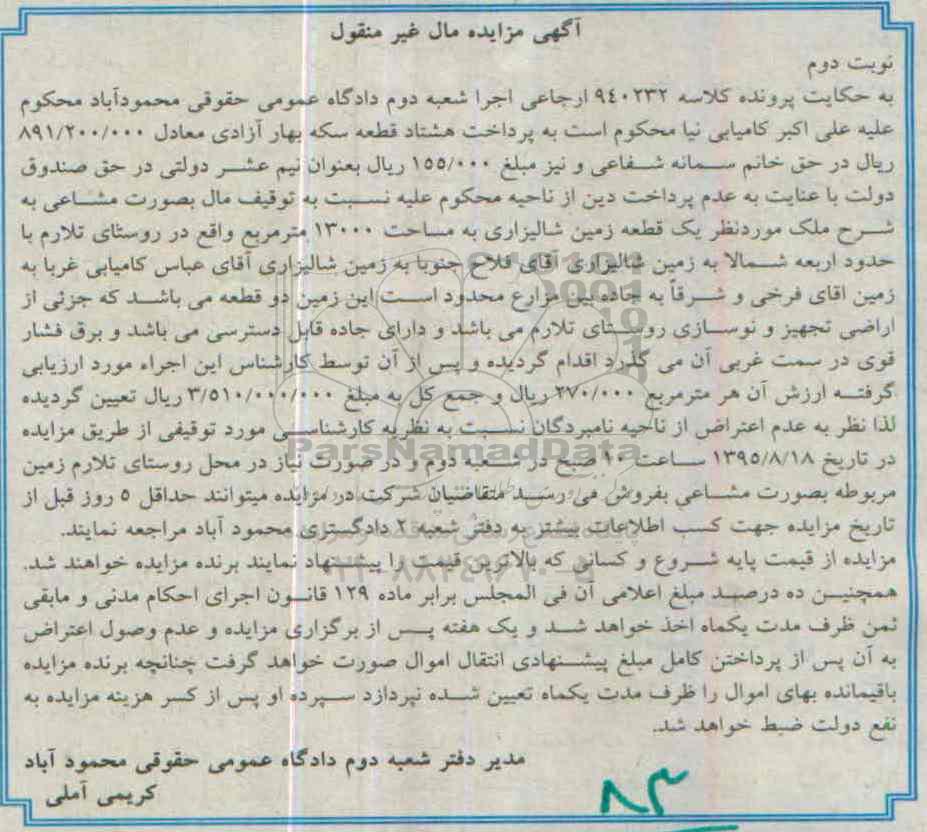 آگهی مزایده مال غیر منقول
نوبت دوم
به حکایت پرونده کلاسه ۹۴۰۲۳۲ ارجاعی اجرا شعبه دوم دادگاه عمومی حقوقی محمودآباد محکوم
علیه علی اکبر کامیابی نیا محکوم است به پرداخت هشتاد قطعه سکه بهار آزادی معادل ۸۹۱/۲۰۰/۰۰۰
ریال در حق خانم سمانه شفاعی و نیز مبلغ ۱۵۵/۰۰۰ ریال بعنوان نیم عشر دولتی در حق صندوق
دولت با عنایت به عدم پرداخت دین از ناحیه محکوم علیه نسبت به توقیف مال بصورت مشاعی به
شرح ملک موردنظر یک قطعه زمین شالیزاری به مساحت ۱۳۰۰۰ مترمربع واقع در روستای تلارم با
حدود اربعه شمالا به زمین شالیزاری آقای فلاح جنوبا به زمین شالیزاری آقای عباس کامیابی غربا به
زمین اقای فرخی و شرقاً به جاده بین مزارع محدود است این زمین دو قطعه می باشد که جزئی از
اراضی تجهیز و نوسازی روستای تلارم می باشد و دارای جاده قابل دسترسی می باشد و برق فشار
قوی در سمت غربی آن می گذرد اقدام گردیده و پس از آن توسط کارشناس این اجراء مورد ارزیابی
گرفته ارزش آن هر مترمربع ۲۷۰/۰۰۰ ریال و جمع کل به مبلغ ۳/۵۱۰/۰۰۰/۰۰۰ ریال تعیین گردیده
لذا نظر به عدم اعتراض از ناحیه نامبردگان نسبت به نظریه کارشناسی مورد توقیفی از طریق مزایده
در تاریخ ۱۳۹۵/۸/۱۸ ساعت ۱۰ صبح در شعبه دوم و در صورت نیاز در محل روستای تلارم زمین
مربوطه بصورت مشاعی بفروش می رسد متقاضیان شرکت در مزایده میتوانند حداقل ۵ روز قبل از
تاریخ مزایده جهت کسب اطلاعات بیشتر به دفتر شعبه ۲ دادگستری محمود آباد مراجعه نمایند.
مزایده از قیمت پایه شروع و کسانی که بالاترین قیمت را پیشنهاد نمایند برنده مزایده خواهند شد.
همچنین ده درصد مبلغ اعلامی آن فی المجلس برابر ماده ۱۲۹ قانون اجرای احکام مدنی و مابقی
ثمن ظرف مدت یکماه اخذ خواهد شد و یک هفته پس از برگزاری مزایده و عدم وصول اعتراض
به آن پس از پرداختن کامل مبلغ پیشنهادی انتقال اموال صورت خواهد گرفت چنانچه برنده مزایده
باقیمانده بهای اموال را ظرف مدت یکماه تعیین شده نپردازد سپرده او پس از کسر هزینه مزایده به
نفع دولت ضبط خواهد شد.
مدیر دفتر شعبه دوم دادگاه عمومی حقوقی محمود آباد
کریمی آملی
ParsNamadData
۸۳